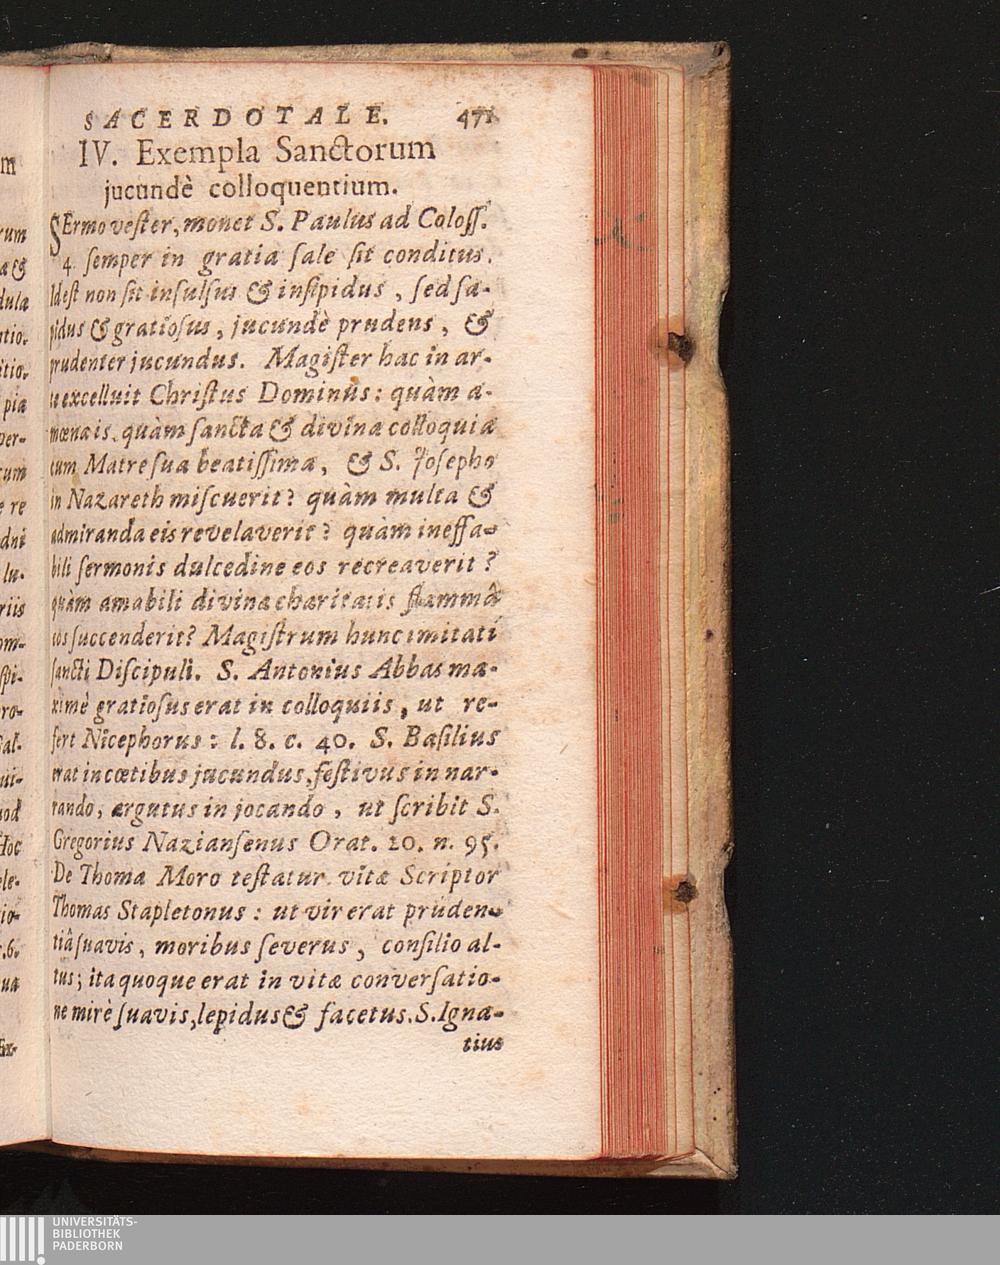 SACERDOTALE. 471
IV. Exempla Sanctorum
jucundè colloquentium.
SErmo vester, monet S. Paulus ad Coloss.
4. semper in gratia sale sit conditus.
Idest non sit insulsus & insipidus, sed sa-
pidus & gratiosus, jucundè prudens, &
prudenter jucundus. Magister hac in ar-
te excelluit Christus Dominus: quàm a-
mœnais, quàm sancta & divina colloquia
cum Matre sua beatissima, & S. Josepho
in Nazareth miscuerit? quàm multa &
admiranda eis revelaverit? quàm ineffa-
bili sermonis dulcedine eos recreaverit?
quàm amabili divinæ charitatis flammâ
eos succenderit? Magistrum hunc imitati
sancti Discipuli. S. Antonius Abbas ma-
ximè gratiosus erat in colloquiis, ut re-
fert Nicephorus: l. 8. c. 40. S. Basilius
erat in cœtibus jucundus, festivus in nar-
rando, argutus in jocando, ut scribit S.
Gregorius Naziansenus Orat. 20. n. 95.
De Thoma Moro testatur vitæ Scriptor
Thomas Stapletonus: ut vir erat pruden-
tiâ suavis, moribus severus, consilio al-
tus; ita quoque erat in vitæ conversatio-
ne mirè suavis, lepidus & facetus. S. Igna-
tius
UNIVERSITÄTS-
BIBLIOTHEK
PADERBORN